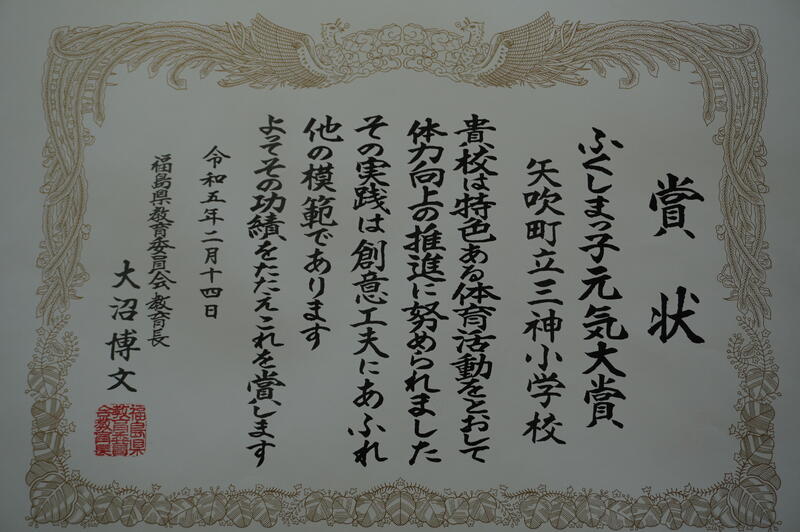 賞状
ふくしまっ子元気大賞
矢吹町立三神小学校
貴校は特色ある体育活動をとおして
体力向上の推進に努められました
その実践は創意工夫にあふれ
他の模範であります
よってその功績をたたえこれを賞します
令和五年二月十四日
福島県教育委員会教育長
大沼博文
福島県
教育委員
会教育長